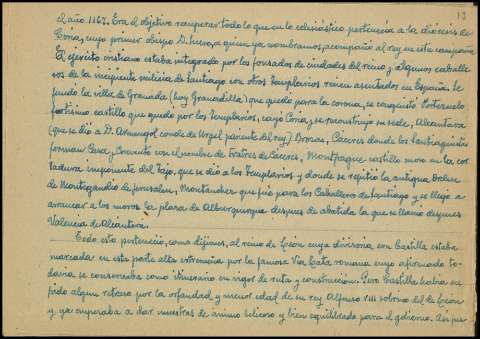 13
el año 1167. Era el objetivo recuperar todo lo que en lo eclesiástico pertenecía a la diócesis de
Coria, cuyo primer obispo D. Suero, a quien ya nombramos, acompañó al rey en esta campaña
El ejército cristiano estaba integrado por los fonsados de ciudades del reino y algunos caballe
ros de la incipiente milicia de Santiago con otros Templarios recien asentados en España. Se
fundó la villa de Granada (hoy Granadilla) que quedó para la corona, se conquistó Portezuelo
fortísimo castillo que quedó por los Templarios, cayó Coria y se reconstruyó su sede, Alcántara
(que se dió a D. Armengol conde de Urgel pariente del rey) Brozas, Cáceres donde los Santiaguistas
forman Casa y Convento con el nombre de Fratres de Cáceres, Montfrague castillo moro en la cor
tadura imponente del Tajo, que se dió a los Templarios y donde se refutió la antigua Orden
de Montegaudio de Jerusalen, Montánchez que fué para los Caballeros de Santiago y se llegó a
arrancar a los moros la plaza de Alburquerque despues de abatida la que se llamó despues
Valencia de Alcántara.
Todo esto pertenecía, como dijimos, al reino de León cuya divisoria con Castilla estaba
marcada en esta parte alta extremeña por la famosa Via Lata romana cuyo afirmado to-
davía se conservaba como itinerario en rigor de ruta y construcción. Pero Castilla había su
frido algun retraso por la orfandad y menor edad de su rey Alfonso VIII sobrino del de León
y ya empezaba a dar muestras de ánimo belicoso y bien equilibrado para el gobierno. Asi pues